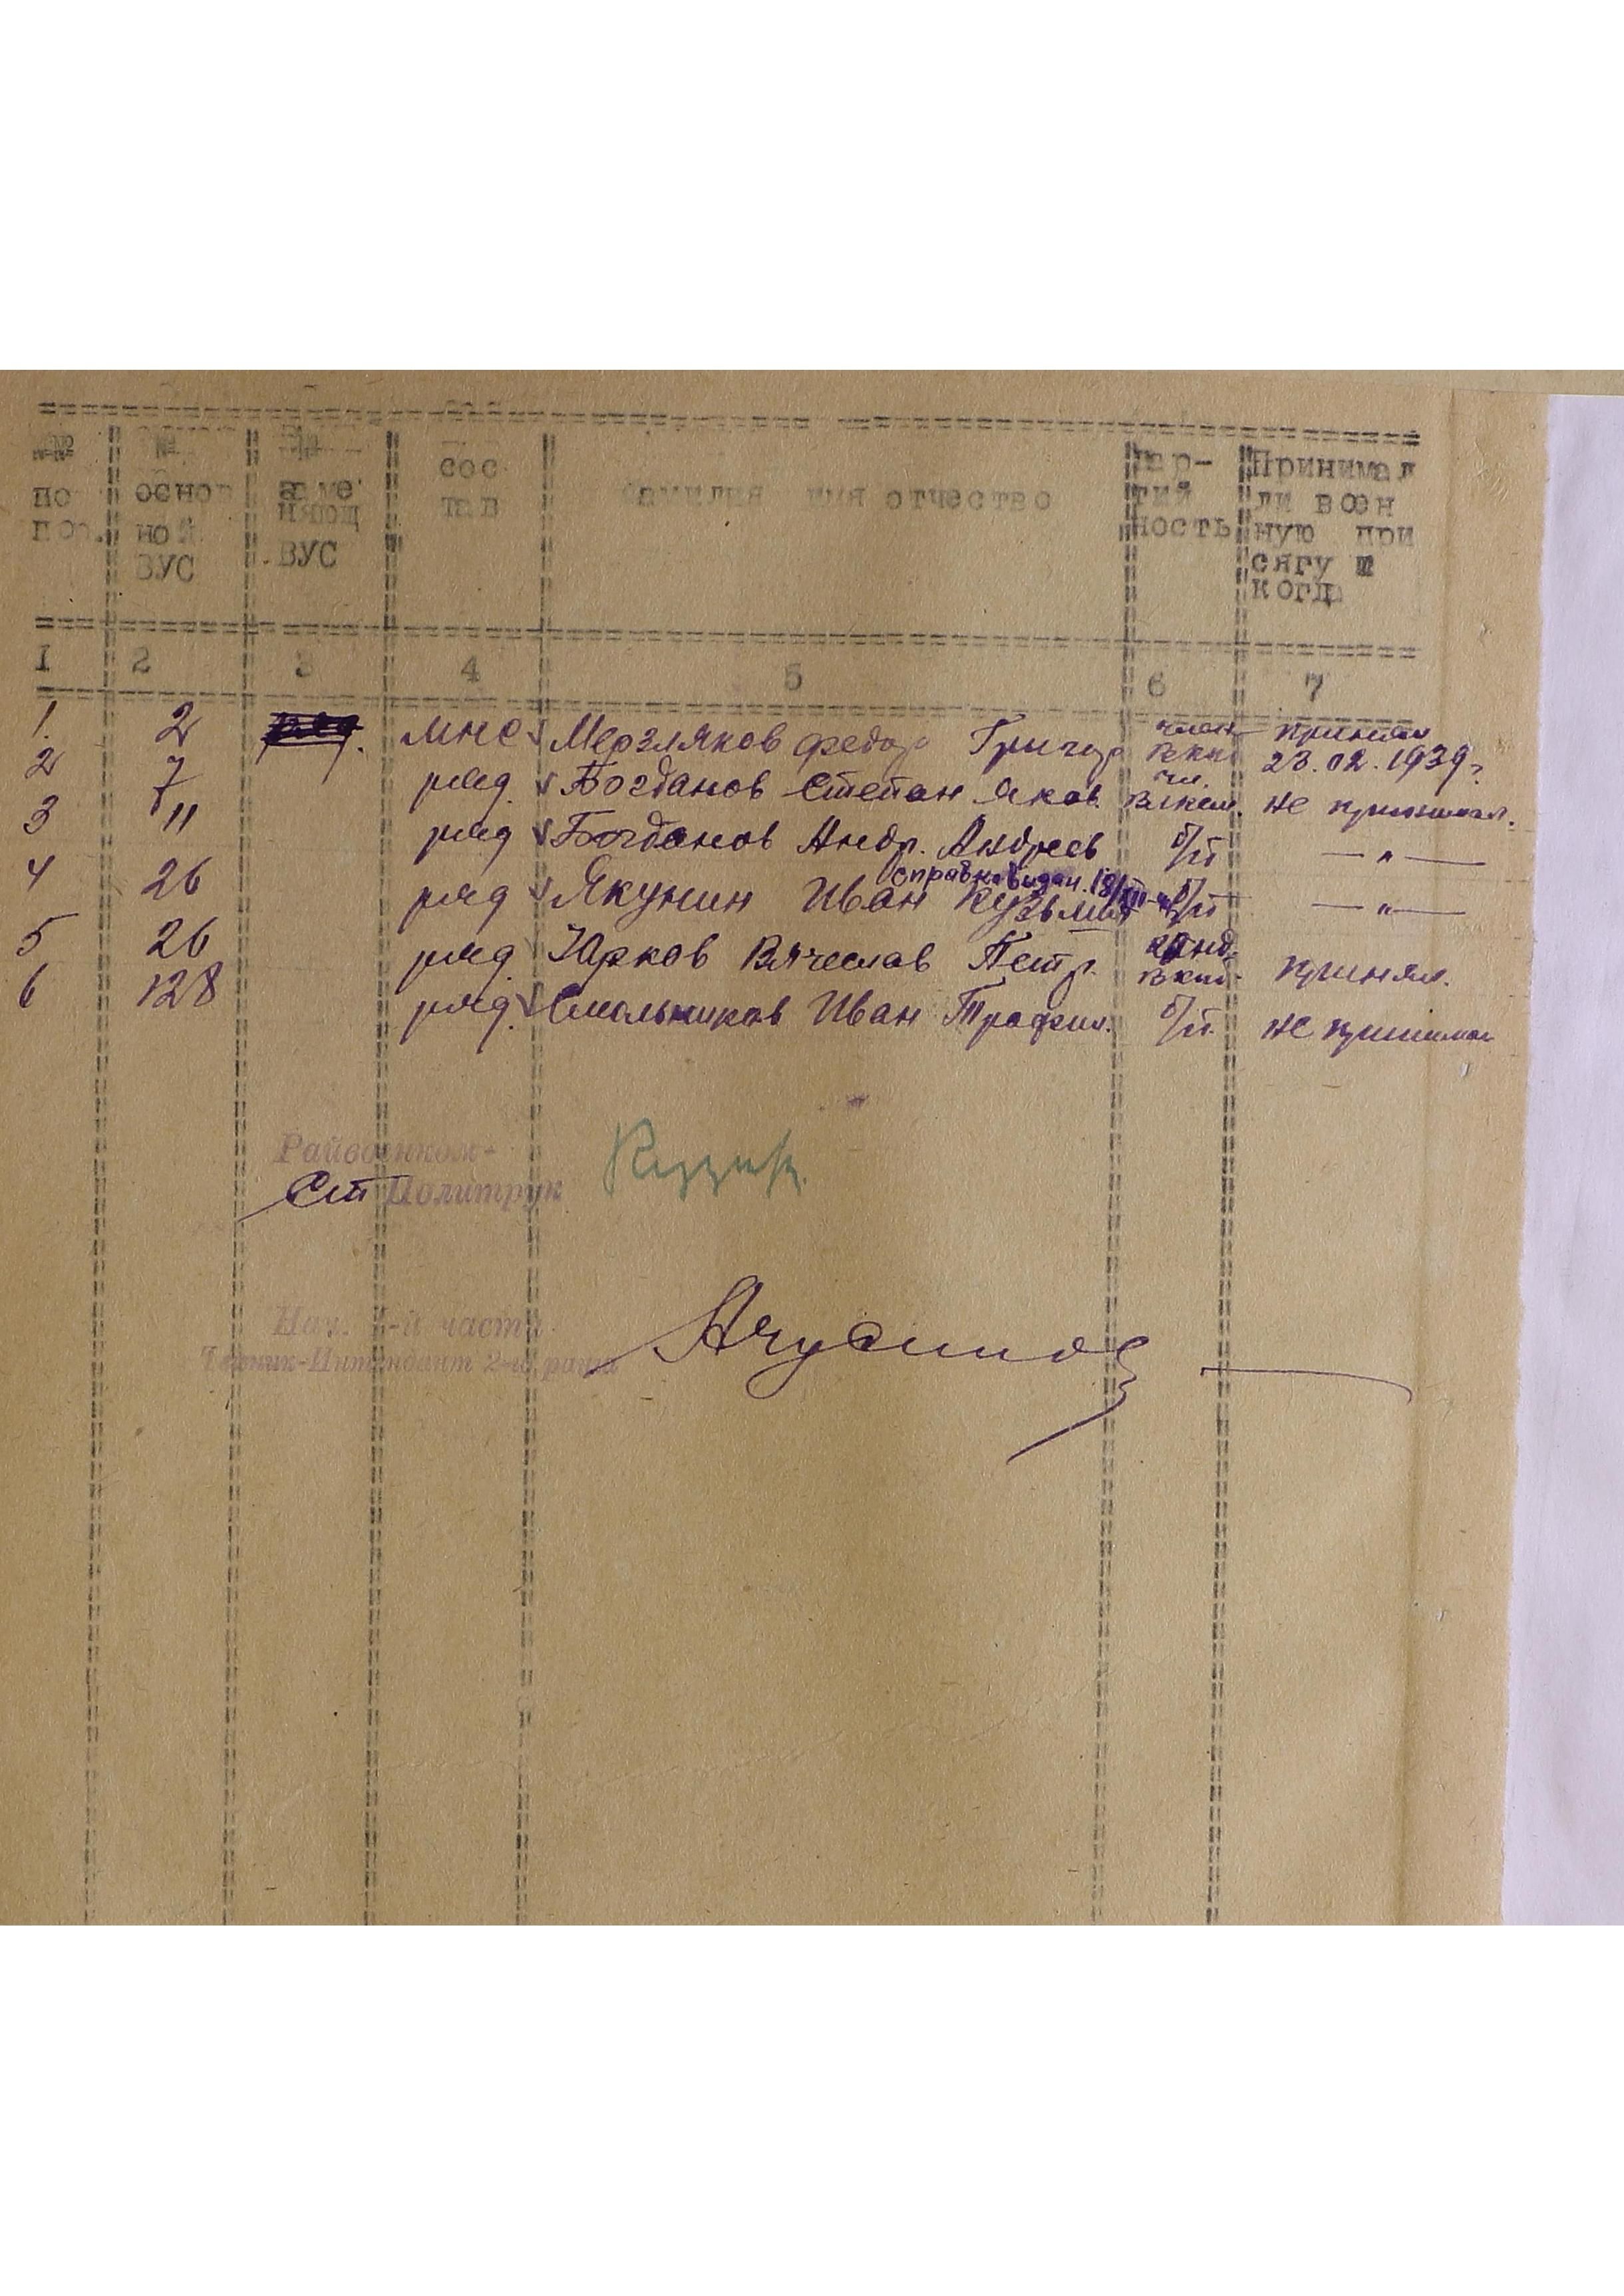 №№ по пор. № основ ной ВУС заме няющ ВУС сос тав фамилия имя отчество пар- тий ность Принимал ли воен ную при сягу и когда
1 2 3 4 5 6 7
1. 2 мнс Мерзляков Федор Григор член вкп принял 23.02.1939г
2 7 ряд. Богданов Степан Яков. чл. влксм. не принимал.
3 11 ряд Богданов Андр. Андреев б/п — " —
справка выдан. 18/
4 26 ряд Якунин Иван Кузьмич б/п — " —
5 26 ряд. Юрков Вячеслав Петр. канд. вкп принял.
6 128 ряд. Смольников Иван Трофим. б/п. не принимал
Райвоенком-
Ст Политрук
Нач. 1-й части
Техник-Интендант 2-го ранга